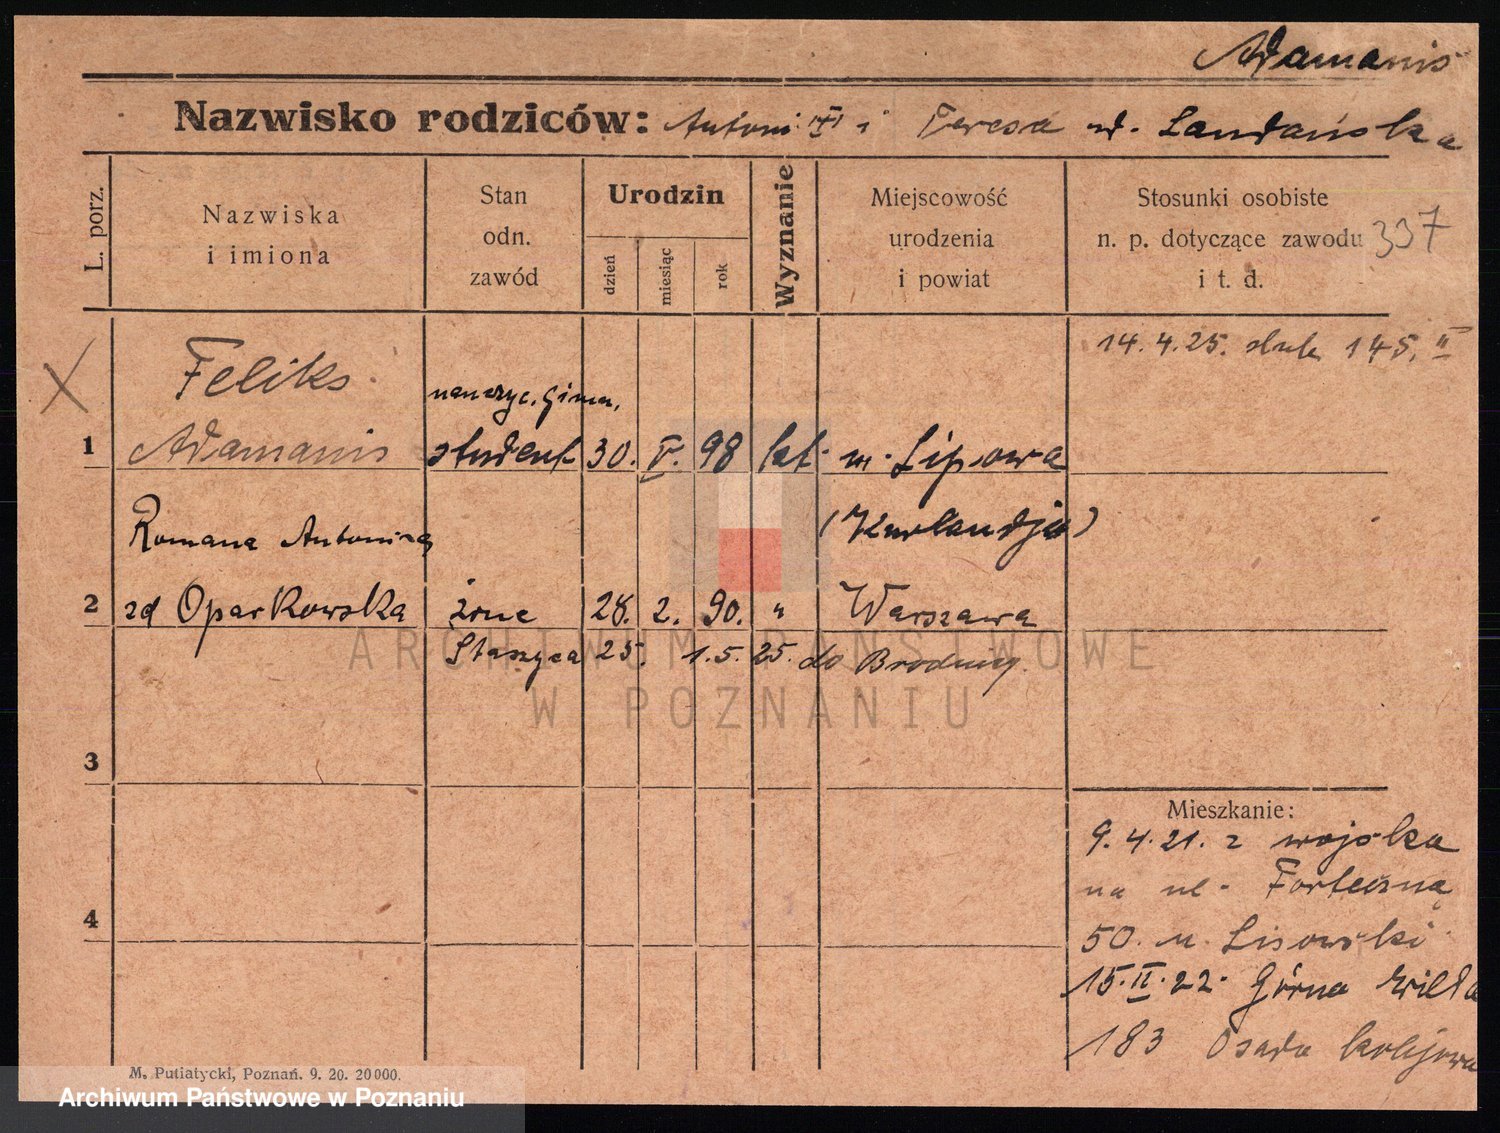 Adamanis
Nazwisko rodziców: Antoni i Teresa ud. Landańska
L. porz.
Nazwiska
i imiona
Stan
odn.
zawód
Urodzin
dzień
miesiąc
rok
Wyznanie
Miejscowość
urodzenia
i powiat
Stosunki osobiste
n. p. dotyczące zawodu
i t. d.
337
14.4.25. 145. II
X
Feliks
nauczyc. Gimn.
1 Adamanis student 30. V. 98 kat. m. Lipowa
(Kurlandja)
Romana Antonina
2 zd Oparkowska żona 28. 2. 90. " Warszawa
Staszyca 25. 1.5.25. do
3
4
Mieszkanie:
9.4.21. z wojska
na ul. Forteczną
50. u. Lisowski
15.II.22. Górna Wilda
183 Osada kolejowa
M. Putiatycki, Poznań. 9. 20. 20000.
ARCHIWUM PAŃSTWOWE
W POZNANIU
Archiwum Państwowe w Poznaniu